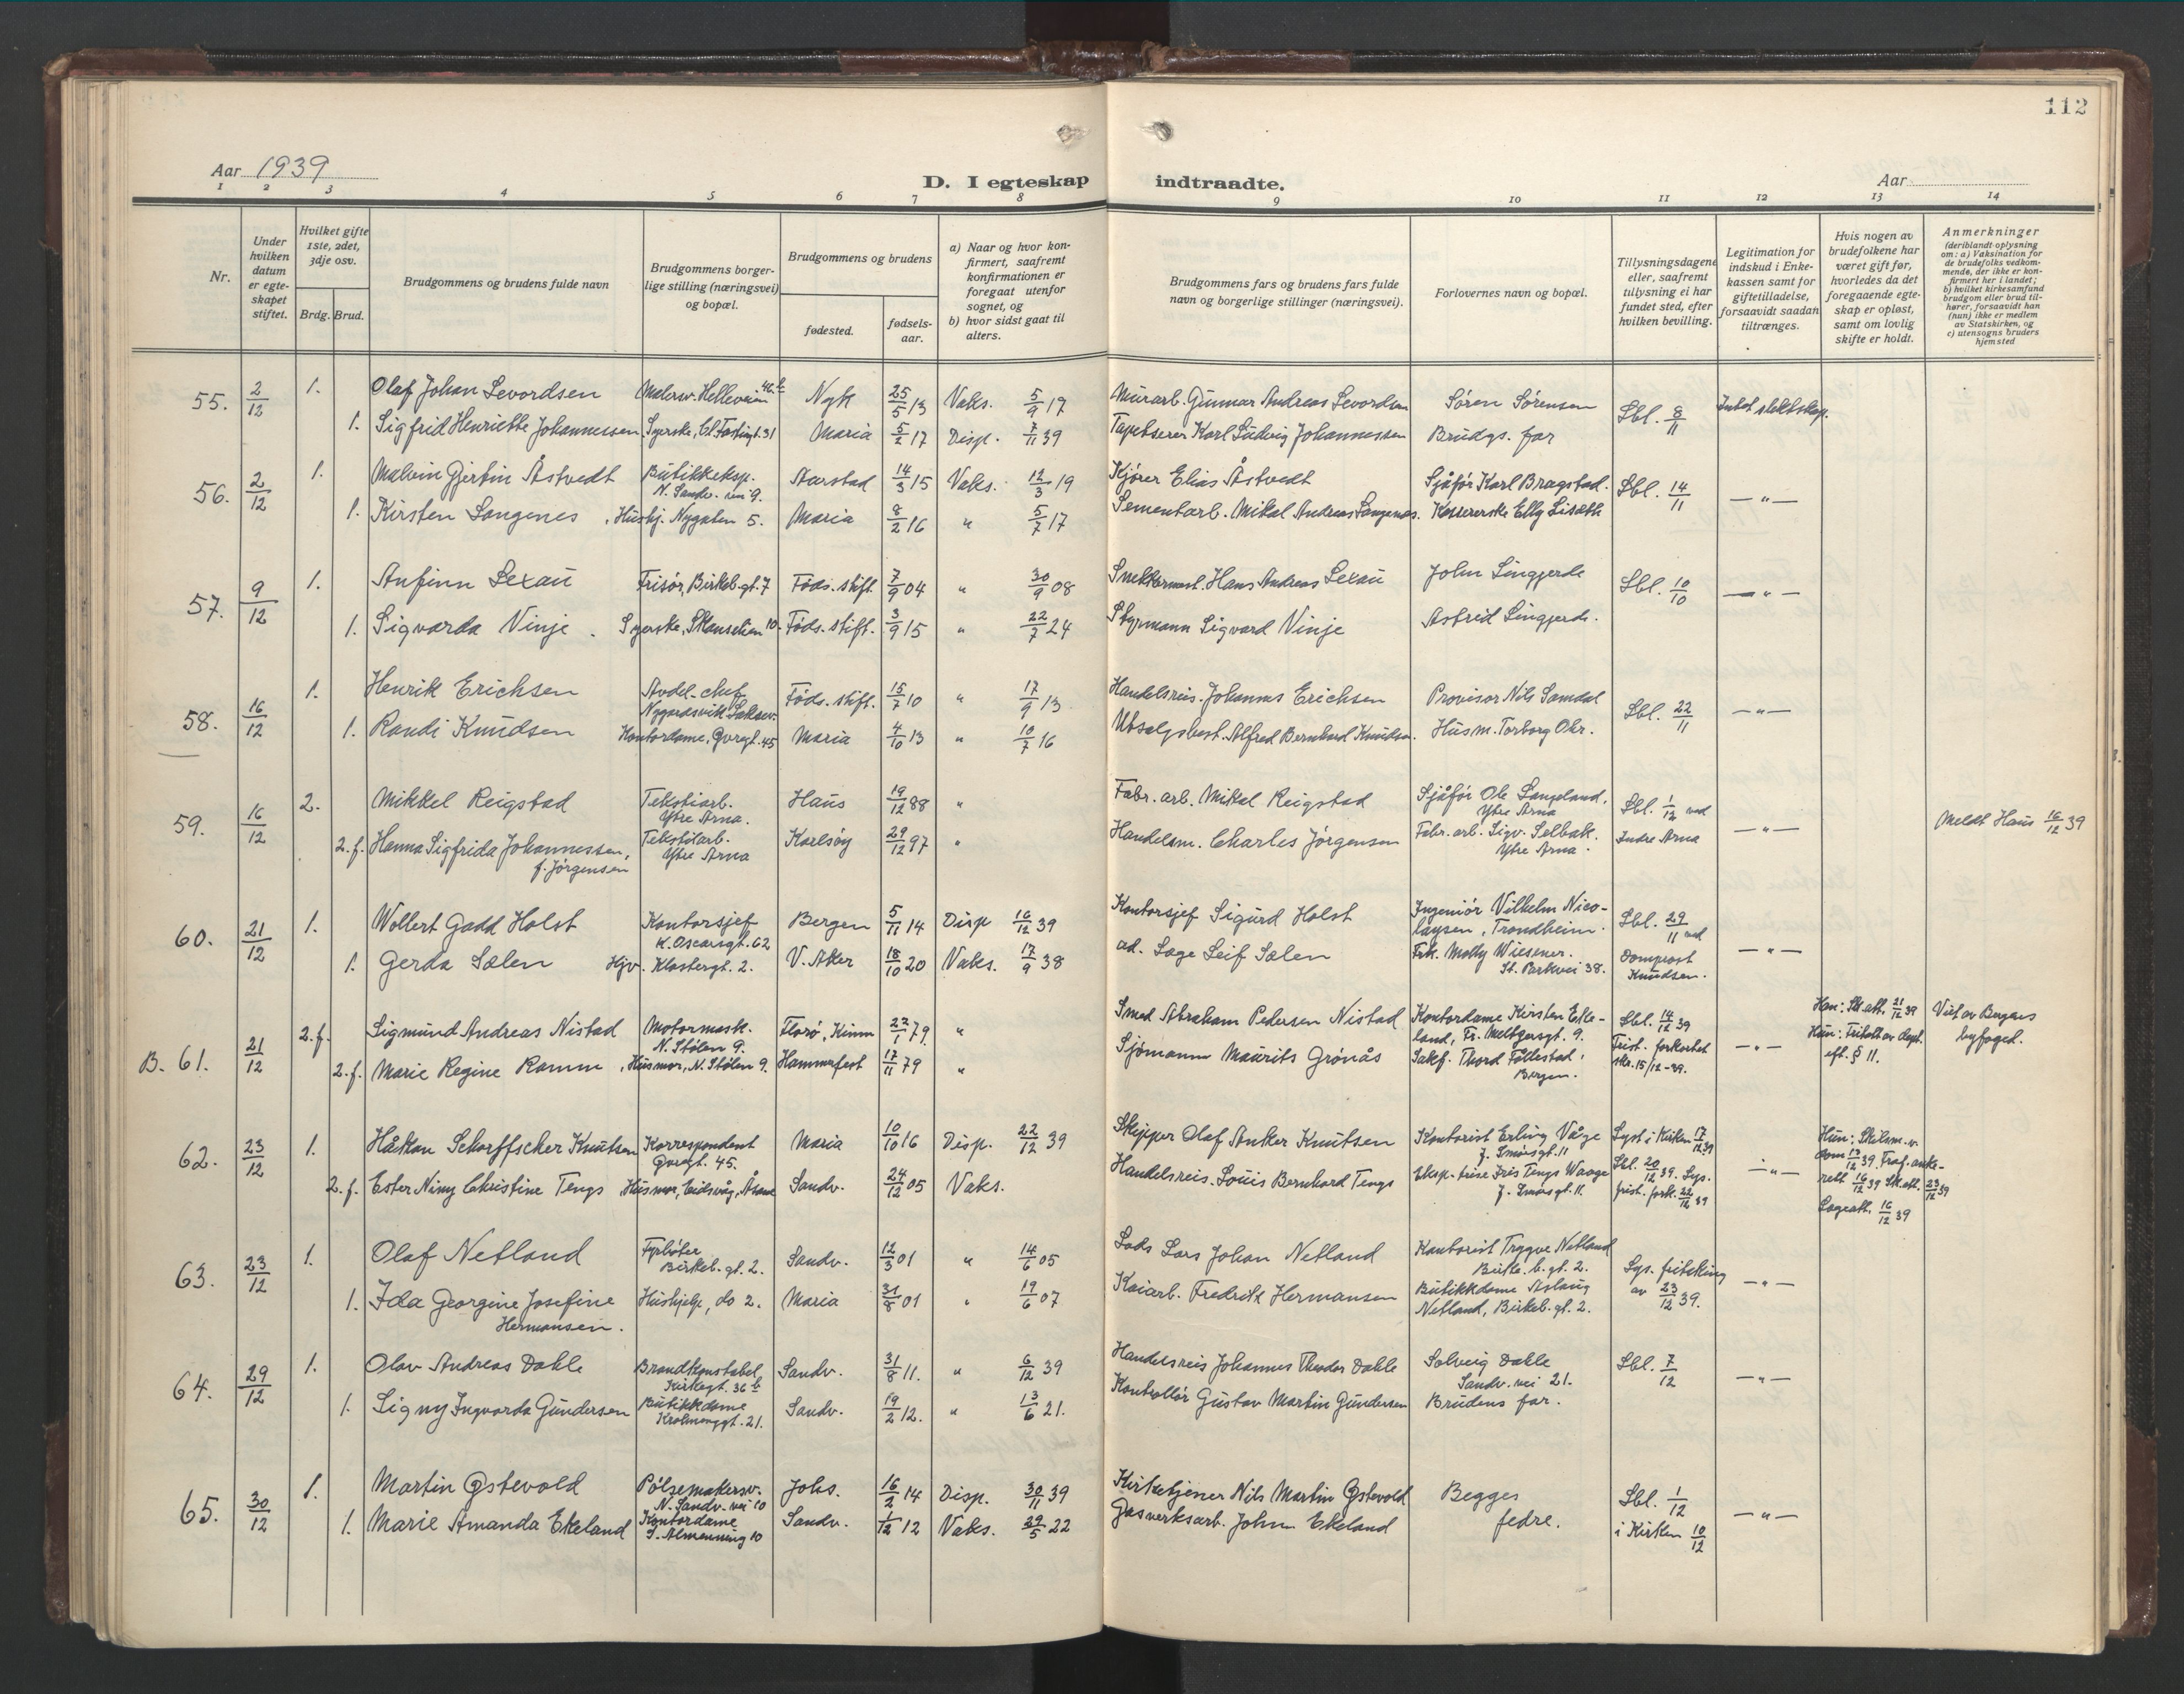 112
Aar 1939
D. I egteskap indtraadte.
Aar
1 2 3 4 5 6 7 8 9 10 11 12 13 14
Nr.
Under hvilken datum er egte-skapet stiftet.
Hvilket gifte 1ste, 2det, 3dje osv.
Brdg. Brud.
Brudgommens og brudens fulde navn
Brudgommens borger-lige stilling (næringsvei) og bopæl.
Brudgommens og brudens
fødested.
fødsels-aar.
a) Naar og hvor kon-firmert, saafremt konfirmationen er foregaat utenfor sognet, og
b) hvor sidst gaat til alters.
Brudgommens fars og brudens fars fulde navn og borgerlige stillinger (næringsvei).
Forlovernes navn og bopæl.
Tillysningsdagene eller, saafremt tillysning ei har fundet sted, efter hvilken bevilling.
Legitimation for indskud i Enke-kassen samt for giftetilladelse, forsaavidt saadan tiltrænges.
Hvis nogen av brudefolkene har været gift før, hvorledes da det foregaaende egte-skap er opløst, samt om lovlig skifte er holdt.
Anmerkninger (deriblandt oplysning om: a) Vaksination for de brudefolks vedkom-mende, der ikke er kon-firmert her i landet; b) hvilket kirkesamfund brudgom eller brud til-hører, forsaavidt han (hun) ikke er medlem av Statskirken, og c) utensogns bruders hjemsted
55. 2/12 1. Olaf Johan Sevordsen Malersv. Helleveien 46 b Nyk 25/5 13 Vaks. 5/9 17 Murarb. Gunnar Andreas Sevordsen Søren Sørensen Sbl. 8/11 Intet slektskap.
1. Sigfrid Henriette Johannessen Syerske, Cl. Fastingt. 31 Maria 5/2 17 Disp. 7/11 39 Tapetserer Karl Ludvig Johannessen Brudgs. far
56. 2/12 1. Malvin Gjertin Åstvedt Butikkeksp. N. Sandv. vei 9. Aarstad 14/3 15 Vaks. 12/3 19 Kjører Elias Åstvedt Sjåfør Karl Bragstad. Sbl. 14/11 — " —
1. Kirsten Sangenes Hushj. Nygaten 5. Maria 8/2 16 " 5/7 17 Sementarb. Mikal Andreas Sangenes. Kassererske Elly Liseth
57. 9/12 1. Anfinn Lexau Frisør, Birkeb. gt. 7 Føds. stift. 7/9 04 " 30/9 08 Snekkermest. Hans Andreas Lexau John Lingjerde Sbl. 10/10 — " —
1. Sigvarda Vinje Syerske, Skanselien 10 Føds. stift. 3/9 15 " 22/7 24 Styrmann Sigvard Vinje Astrid Lingjerde.
58. 16/12 1. Henrik Erichsen Avdel. chef Nygardsvik Laksev. Føds. stift. 15/7 10 " 17/9 13 Handelsreis. Johannes Erichsen Provisor Nils Samdal Sbl. 22/11 — " —
1. Randi Knudsen Kontordame, Øvregt. 45 Maria 4/10 13 " 10/7 16 Utsalgsbest. Alfred Bernhard Knudsen. Husm. Torborg Ohr.
59. 16/12 2. Mikkel Reigstad Tekstilarb. Ytre Arna. Haus 19/12 88 " Fabr. arb. Mikal Reigstad Sjåfør Ole Langeland, Ytre Arna Sbl. 1/12 ved — " — Meldt Haus 16/12 39
2. f. Hanna Sigfrida Johannessen, f. Jørgensen Tekstilarb. Ytre Arna Karlsøy 29/12 97 " Handelsm. Charles Jørgensen Fabr. arb. Sigv. Selbak. Ytre Arna. Indre Arna
60. 21/12 1. Wollert Gadd Holst Kontorsjef K. Oscarsgt. 62 Bergen 5/11 14 Disp 16/12 39 Kontorsjef Sigurd Holst Ingeniør Vilhelm Nico-laysen, Trondheim. Sbl. 29/11 ved — " —
1. Gerda Salen Hgv. Klostergt. 2. V. Aker 18/10 20 Vaks. 17/9 38 ad. Sage Leif Salen Frk. Molly Wiesener. St. Parkvei 38. Domprost Knudsen.
B. 61. 21/12 2. f. Sigmund Andreas Nistad Motormask. N. Stølen 9. Florø, Kinn 22/1 79. " Smed Abraham Pedersen Nistad Kontordame Kirsten Eke-land, Fr. Meltzersgt. 9. Sbl. 14/12 39 — " — Han: Sk. att. 21/12 39 Viet av Bergens byfoged.
2. f. Marie Regine Ramm Husmor, N. Stølen 9. Hammerfest 17/11 79 " Sjømann Maurits Grønås Sakf. Thord Følle stad, Bergen. Frist. forkortet skr. 15/12-39. eft. § 11.
62. 23/12 1. Håkon Schorffscher Knutsen Korrespondent Øvregt. 45. Maria 10/10 16 Disp. 22/12 39 Skipper Olaf Anker Knutsen Kontorist Erling Våge J. Smørsgt. 11 Lyst i Kirken 17/12 39 — " — Hun: Skilsm. v. dom 13/12 39. Fraf. anke-rett 16/12 39 Sk. att. 23/12 39
2. f. Ester Nimy Christine Tengs Husmor, Eidsvåg, Åsane Sandv. 24/12 05 Vaks. Handelsreis. Louis Bernhard Tengs Eksp. trise Iris Tengs Waage J. Smørsgt. 11. Sbl. 20/12 39. Lys. frist. fork. 22/12 39 Sageatt. 16/12 39
63. 23/12 1. Olaf Netland Fyrbøter Birkeb. gt. 2. Sandv. 12/3 01 " 14/6 05 Lods Lars Johan Netland Kontorist Trygve Netland Birke. b. gt. 2. Lys. fritaking av 23/12 39. — " —
1. Ida Georgine Josefine Hermansen. Hushjelp, do 2. Maria 31/8 01 " 19/6 07 Kaiarb. Fredrik Hermansen Butikkdame Aslaug Netland, Birkeb. gt. 2.
64. 29/12 1. Olav Andreas Dahle Brandkonstabel Kirkegt. 36 b Sandv. 31/8 11. " 6/12 39 Handelsreis Johannes Theodor Dahle Solveig Dahle Sandv. vei 21. Sbl. 7/12 — " —
1. Signy Ingvarda Gundersen Butikkdame Krohnenggt. 21. Sandv. 19/2 12. " 13/6 21. Kontrollør Gustav Martin Gundersen Brudens far.
65. 30/12 1. Martin Østevold Pølsemakersv. N. Sandv. vei 10 Johs. 16/2 14 Disp. 30/11 39 Kirketjener Nils Martin Østevold Begges fedre. Sbl. 1/12 i Kirken 10/12 — " —
1. Marie Amanda Ekeland Kontordame S. Almenning 10 Sandv. 1/12 12 Vaks. 29/5 22 Gasverksarb. John Ekeland